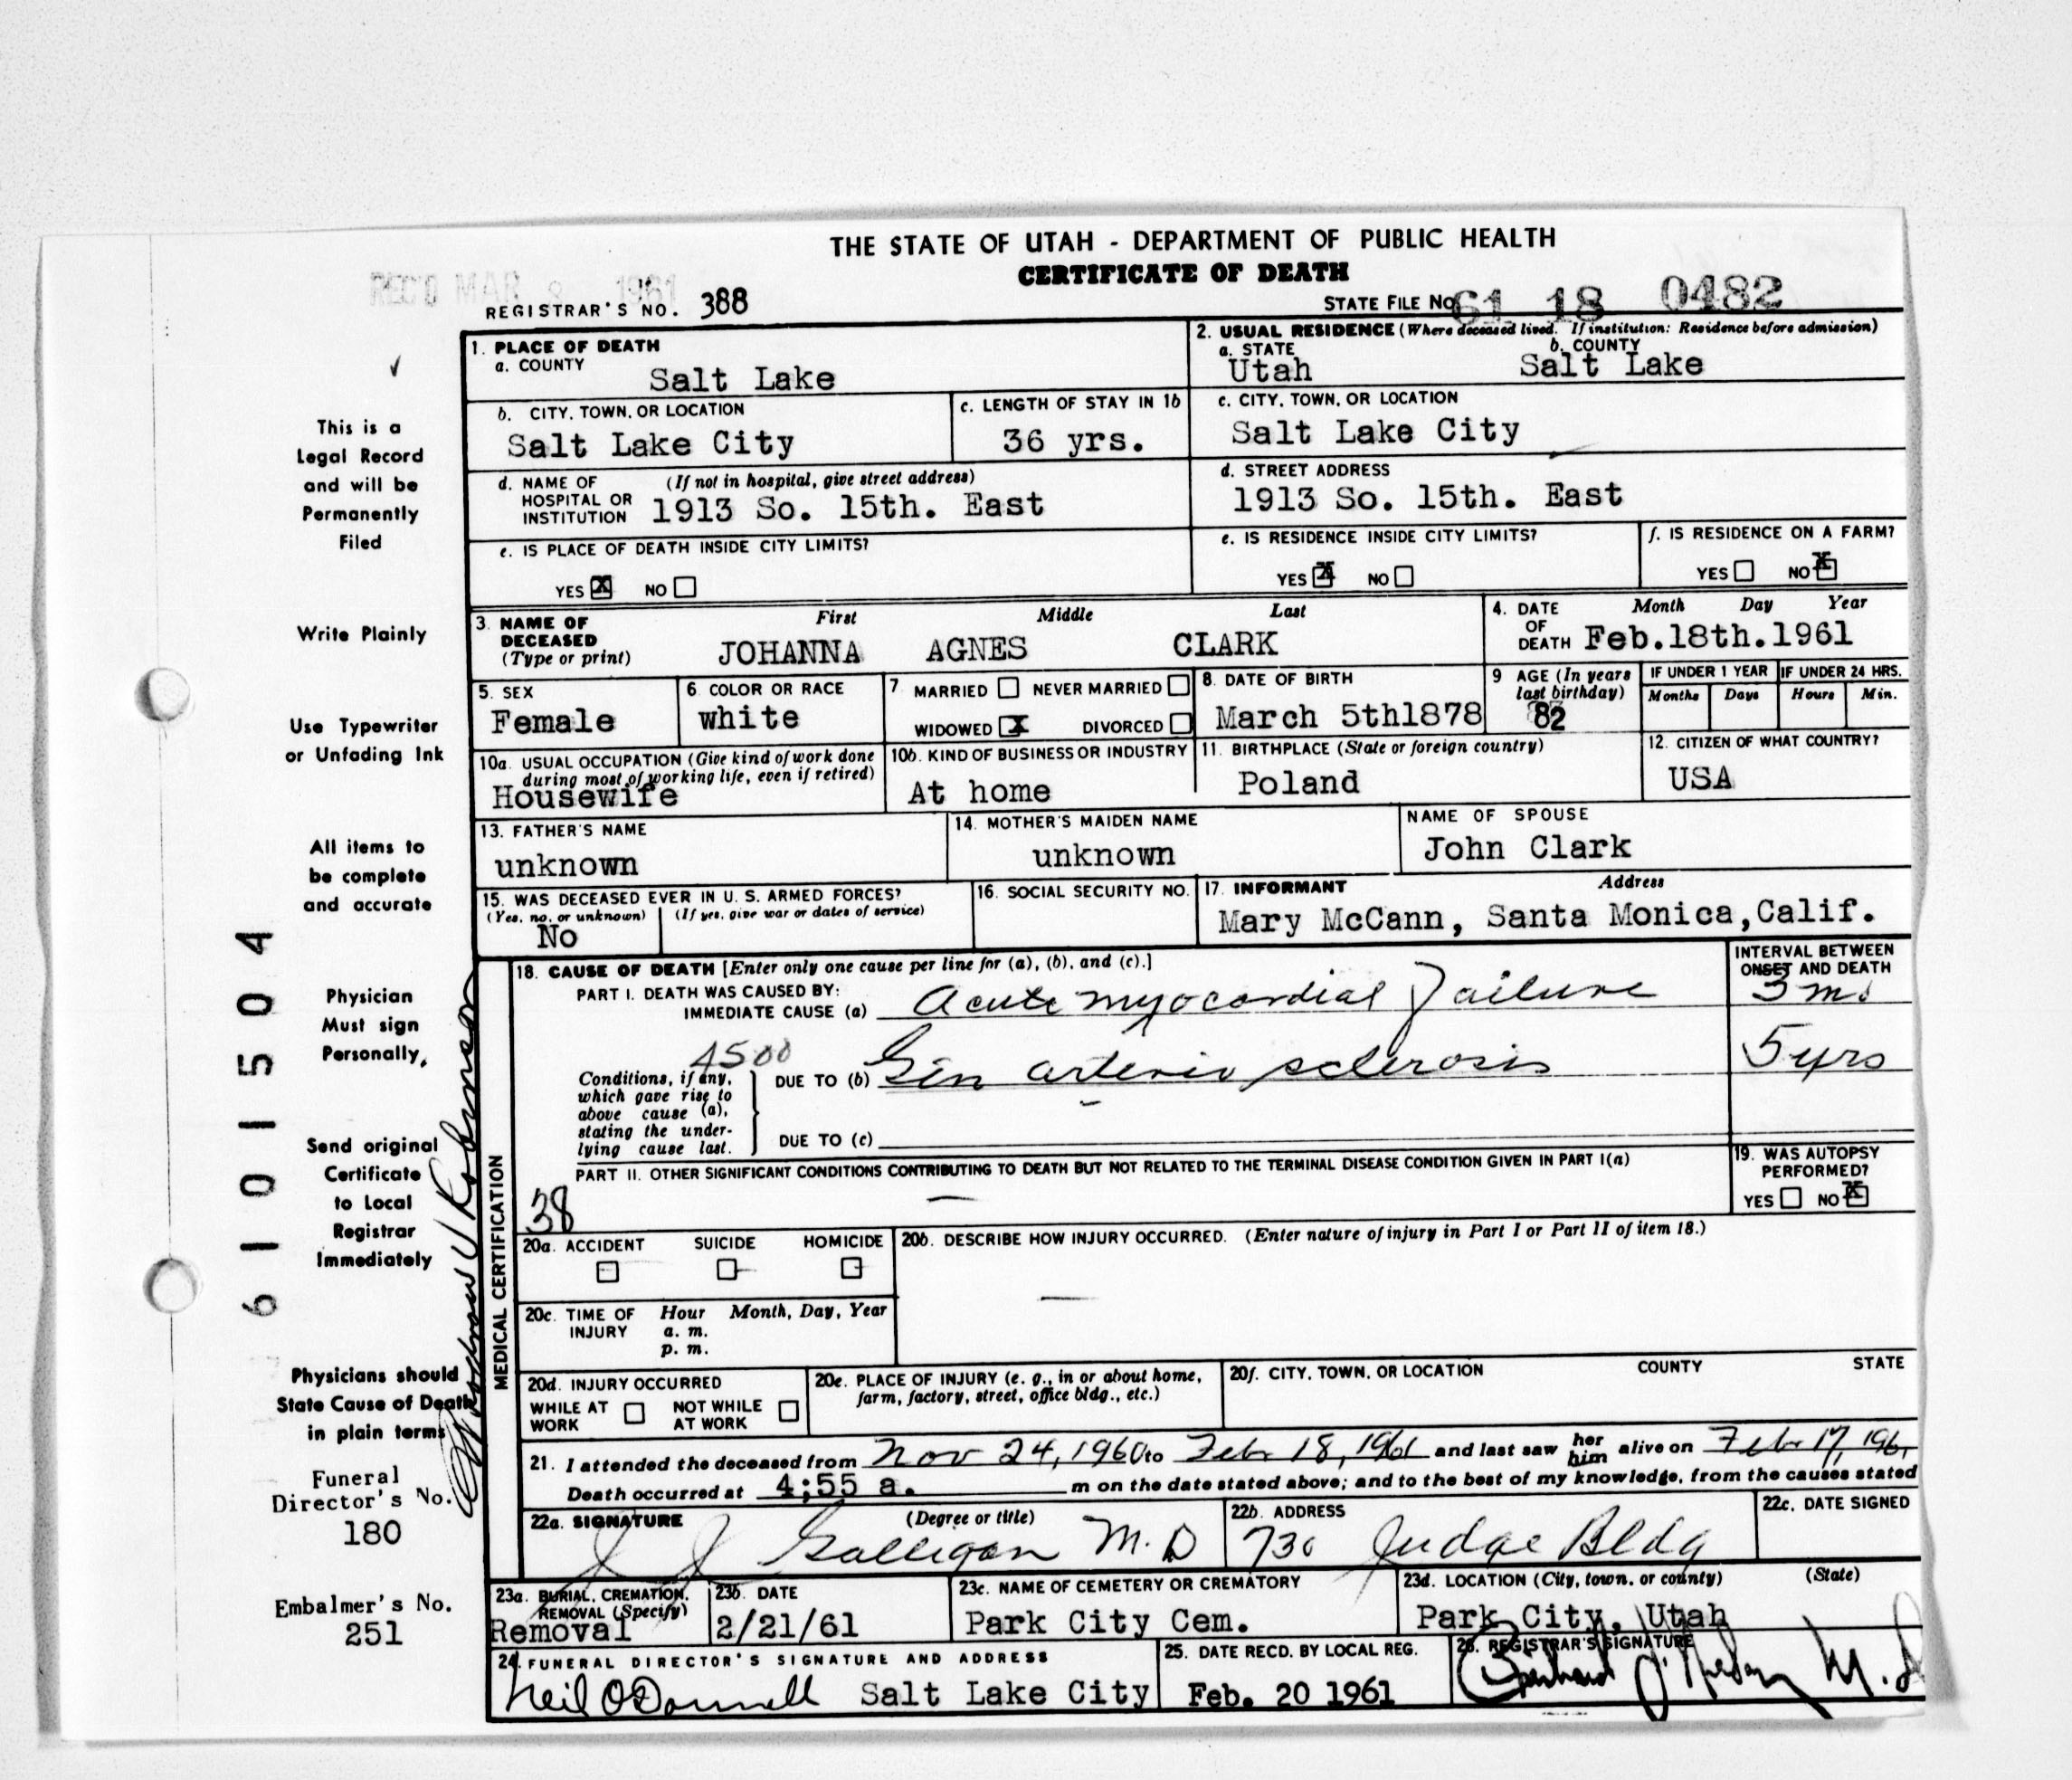 THE STATE OF UTAH - DEPARTMENT OF PUBLIC HEALTH
CERTIFICATE OF DEATH
REC'D MAR 1961
REGISTRAR'S NO. 388
STATE FILE NO. 61 18 0482
1. PLACE OF DEATH
a. COUNTY
Salt Lake
2. USUAL RESIDENCE (Where deceased lived. If institution: Residence before admission)
a. STATE b. COUNTY
Utah Salt Lake
b. CITY, TOWN, OR LOCATION
Salt Lake City
c. LENGTH OF STAY IN 1b
36 yrs.
c. CITY, TOWN, OR LOCATION
Salt Lake City
d. NAME OF HOSPITAL OR INSTITUTION (If not in hospital, give street address)
1913 So. 15th. East
d. STREET ADDRESS
1913 So. 15th. East
e. IS PLACE OF DEATH INSIDE CITY LIMITS?
YES X NO
e. IS RESIDENCE INSIDE CITY LIMITS?
YES X NO
f. IS RESIDENCE ON A FARM?
YES NO X
3. NAME OF DECEASED (Type or print)
First Middle Last
JOHANNA AGNES CLARK
4. DATE OF DEATH Month Day Year
Feb.18th.1961
5. SEX
Female
6. COLOR OR RACE
white
7. MARRIED NEVER MARRIED
WIDOWED X DIVORCED
8. DATE OF BIRTH
March 5th1878
9. AGE (In years last birthday)
82
IF UNDER 1 YEAR IF UNDER 24 HRS.
Months Days Hours Min.
10a. USUAL OCCUPATION (Give kind of work done during most of working life, even if retired)
Housewife
10b. KIND OF BUSINESS OR INDUSTRY
At home
11. BIRTHPLACE (State or foreign country)
Poland
12. CITIZEN OF WHAT COUNTRY?
USA
13. FATHER'S NAME
unknown
14. MOTHER'S MAIDEN NAME
unknown
NAME OF SPOUSE
John Clark
15. WAS DECEASED EVER IN U. S. ARMED FORCES?
(Yes, no, or unknown) (If yes, give war or dates of service)
No
16. SOCIAL SECURITY NO.
17. INFORMANT Address
Mary McCann, Santa Monica,Calif.
MEDICAL CERTIFICATION
18. CAUSE OF DEATH [Enter only one cause per line for (a), (b), and (c).]
INTERVAL BETWEEN ONSET AND DEATH
PART I. DEATH WAS CAUSED BY:
IMMEDIATE CAUSE (a) Acute myocardial Failure 3 mo
4500
Conditions, if any, which gave rise to above cause (a), stating the underlying cause last.
DUE TO (b) Gen arterio sclerosis 5 yrs
DUE TO (c)
PART II. OTHER SIGNIFICANT CONDITIONS CONTRIBUTING TO DEATH BUT NOT RELATED TO THE TERMINAL DISEASE CONDITION GIVEN IN PART I(a)
38
19. WAS AUTOPSY PERFORMED?
YES NO X
20a. ACCIDENT SUICIDE HOMICIDE
20b. DESCRIBE HOW INJURY OCCURRED. (Enter nature of injury in Part I or Part II of item 18.)
20c. TIME OF INJURY Hour Month, Day, Year
a. m.
p. m.
20d. INJURY OCCURRED
WHILE AT WORK NOT WHILE AT WORK
20e. PLACE OF INJURY (e. g., in or about home, farm, factory, street, office bldg., etc.)
20f. CITY, TOWN, OR LOCATION COUNTY STATE
21. I attended the deceased from Nov 24, 1960 to Feb 18, 1961 and last saw her him alive on Feb 17, 1961
Death occurred at 4;55 a. m on the date stated above; and to the best of my knowledge, from the causes stated
22a. SIGNATURE (Degree or title)
J J Galligan M.D
22b. ADDRESS
730 Judge Bldg
22c. DATE SIGNED
23a. BURIAL, CREMATION, REMOVAL (Specify)
Removal
23b. DATE
2/21/61
23c. NAME OF CEMETERY OR CREMATORY
Park City Cem.
23d. LOCATION (City, town, or county) (State)
Park City, Utah
24. FUNERAL DIRECTOR'S SIGNATURE AND ADDRESS
Neil O'Donnell Salt Lake City
25. DATE RECD. BY LOCAL REG.
Feb. 20 1961
26. REGISTRAR'S SIGNATURE
M.D
This is a
Legal Record
and will be
Permanently
Filed
Write Plainly
Use Typewriter
or Unfading Ink
All items to
be complete
and accurate
Physician
Must sign
Personally,
Send original
Certificate
to Local
Registrar
Immediately
Physicians should
State Cause of Death
in plain terms
Funeral
Director's No.
180
Embalmer's No.
251
6101504